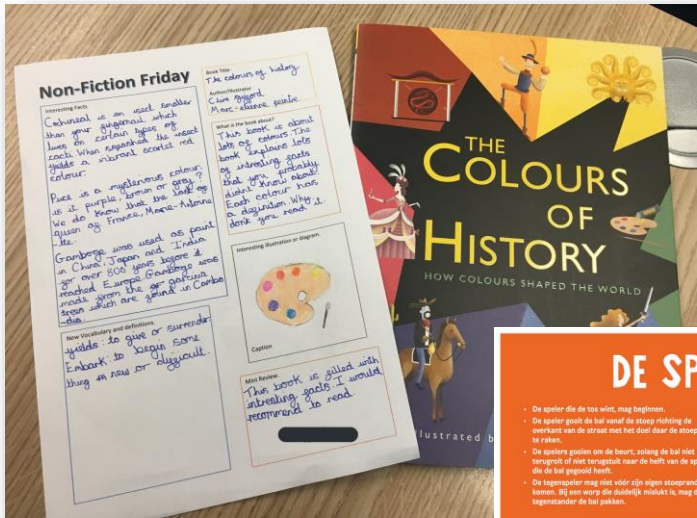 Non-Fiction Friday
Interesting Facts
Cochineal is an insect smaller
than your fingernail which
lives on certain types of
cacti. When squashed the insect
yields a vibrant scarlet red
colour.
Puce is a mysterious colour.
is it purple, brown or gray?
We do know that the last
queen of France, Marie-Antoine
-tte.
Gamboge was used as paint
in China, Japan and India
for over 800 years before it
reached Europe. Gamboge was
made from the garcinia
trees which are found in Cambo
dia.
New Vocabulary and definitions.
yields: to give or surrender
Embark: to begin some
thing new or difficult.
Book Title
The colours of history
Author/Illustrator
Clive Gifford
Marc-etienne peintre
What is the book about?
This book is about
lots of colours. The
book explains lots
of intresting facts
that you probably
didnt know about.
Each colour has
a definition. Why
dont you read it.
Interesting illustration or diagram.
Caption
Mini Review
This book is filled with
intresting facts. I would
recommend to read.
THE
COLOURS
OF
HISTORY
HOW COLOURS SHAPED THE WORLD
lustrated b
DE SP
De speler die de tos wint, mag beginnen.
De speler gooit de bal vanaf de stoep richting de
overkant van de straat met het doel daar de stoep
te raken.
De spelers gooien om de beurt, zolang de bal niet
terugrolt of niet terugstuit naar de helft van de sp
die de bal gegooid heeft.
De tegenspeler mag niet vóór zijn eigen stoeprand
komen. Bij een worp die duidelijk mislukt is, mag d
tegenstander de bal pakken.